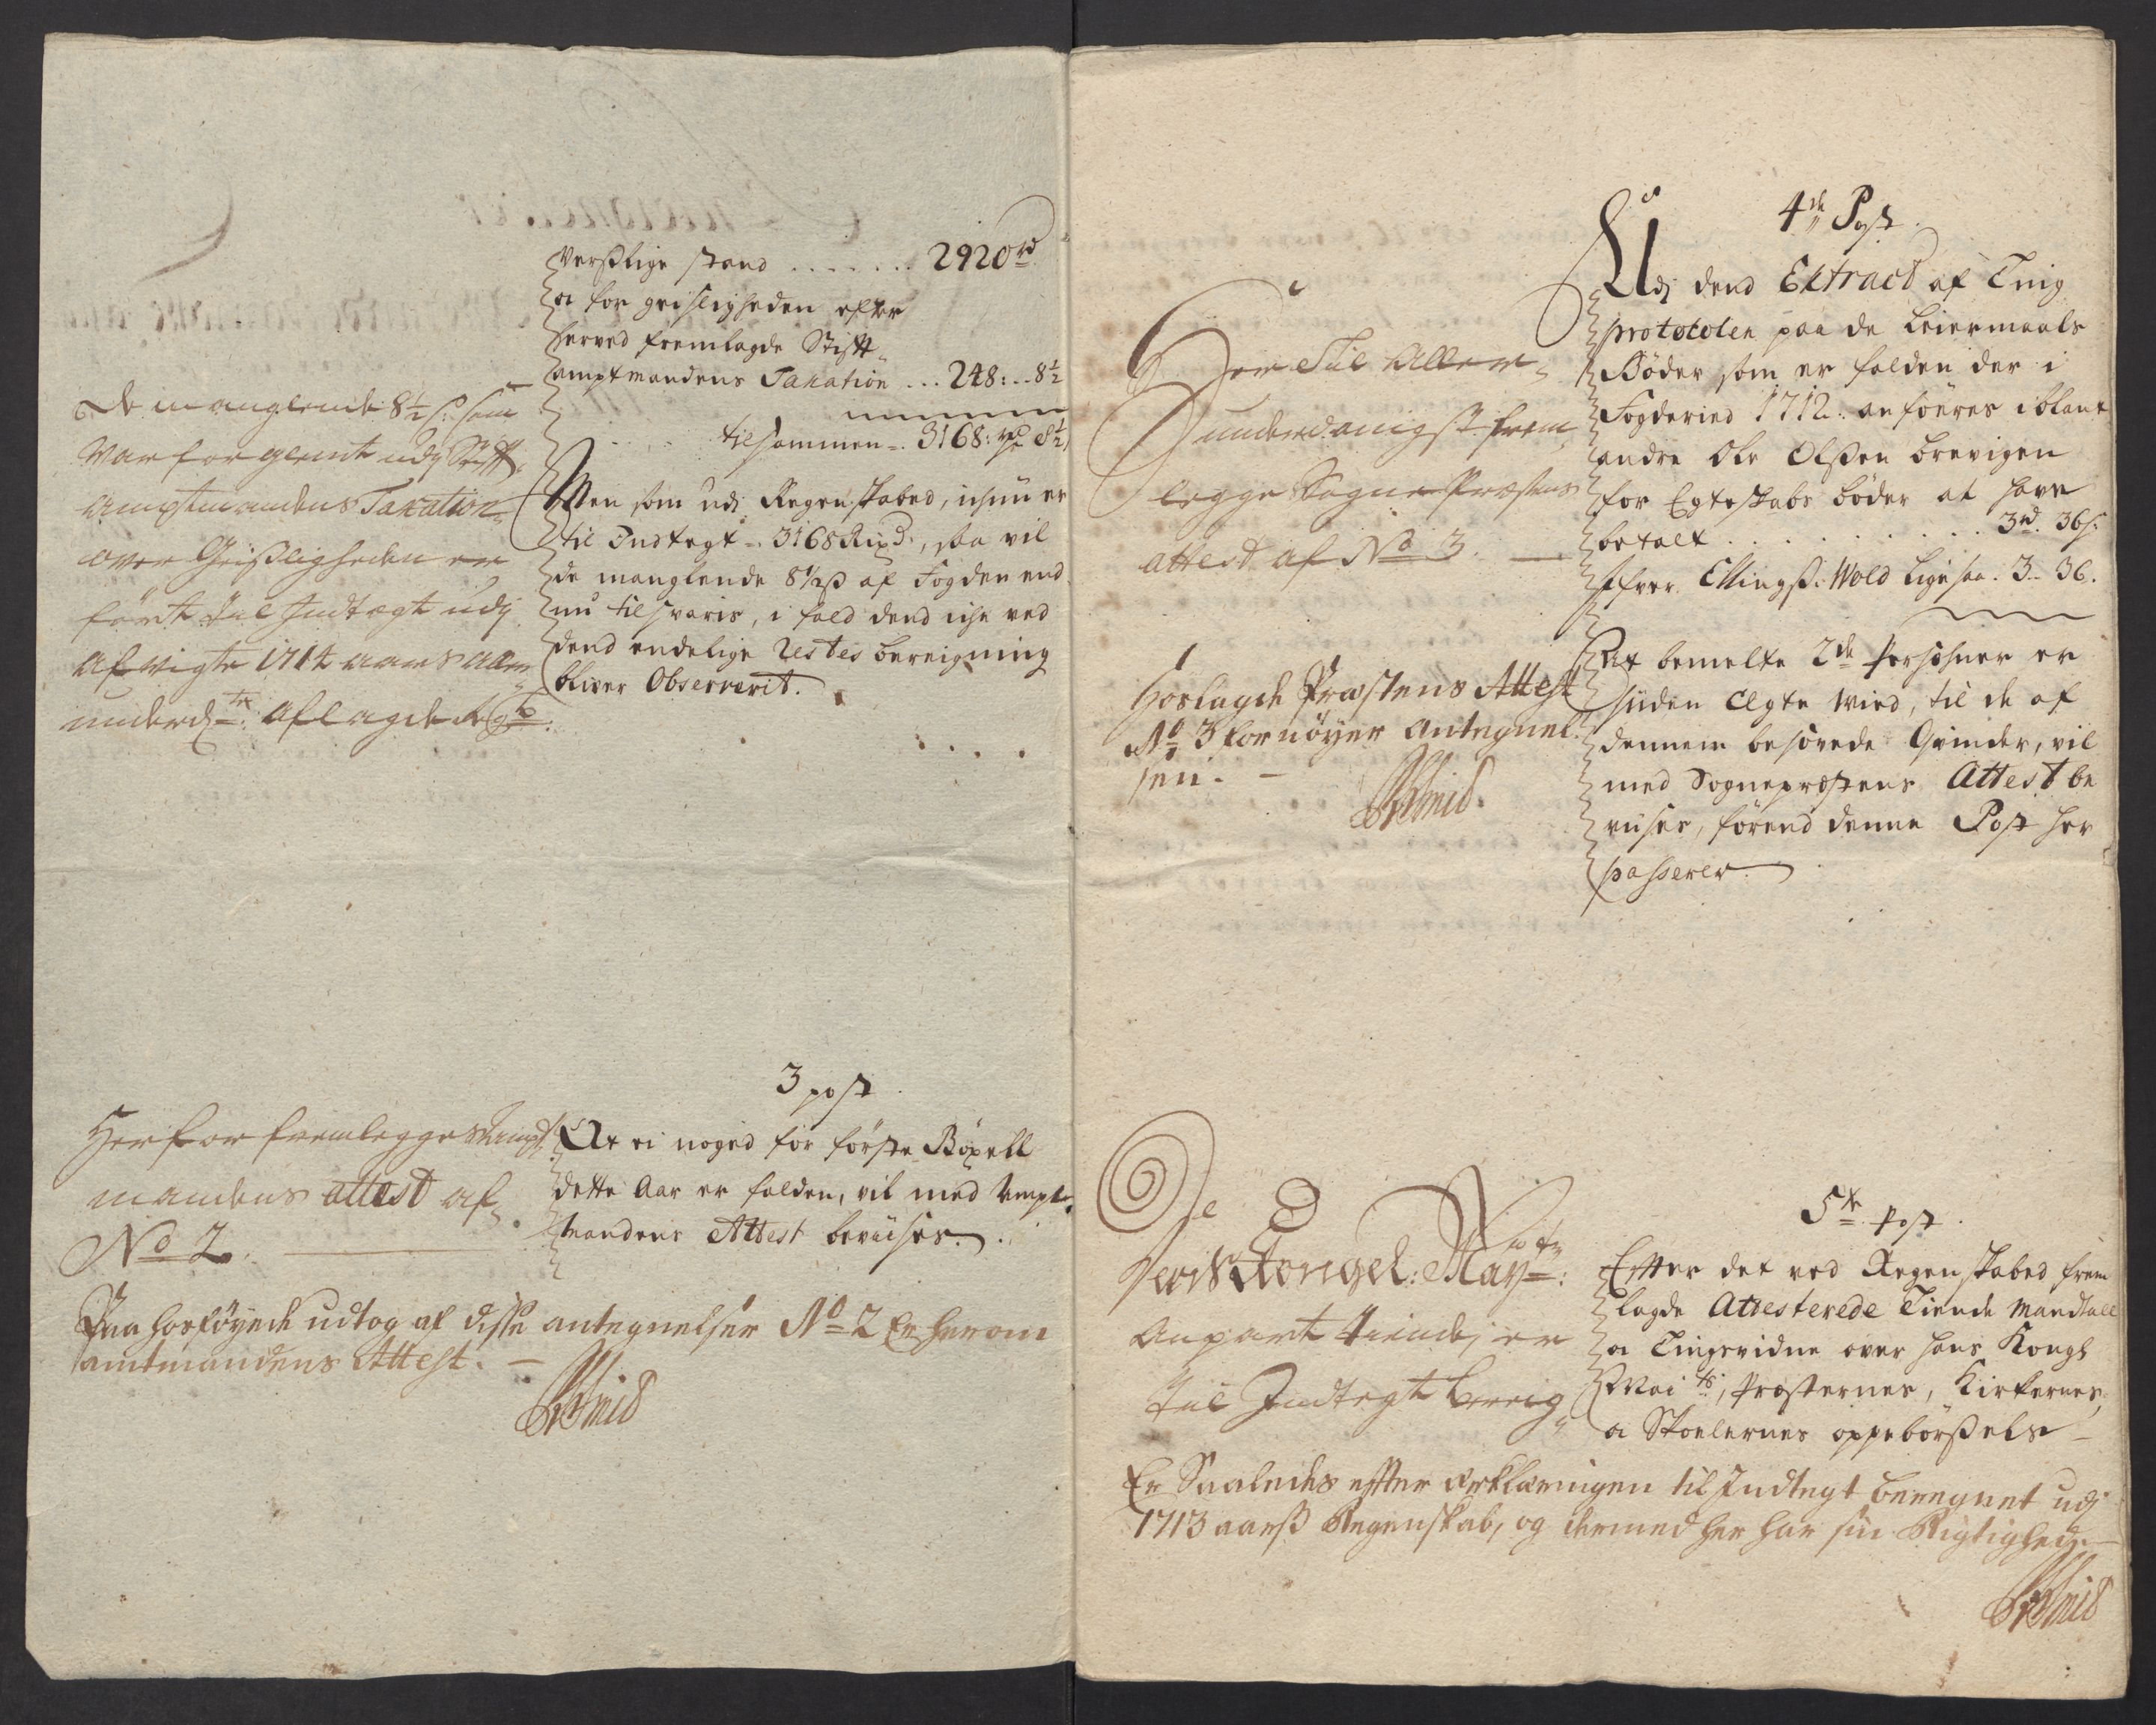 verßlige stand ....... 2920 rd
a for geistligheden efter
herved fremlagde Stift-
amptmandens Taxation ... 248: .. 8½
tilsammen -. 3168: rd 8½
Men som udj Regenskabed, ichun er
til Indtegt -. 3168 Rixd., saa vil
de manglende 8½ ß af Fogden end
nu tilsvaris, i fald dend iche ved
dend endelige Restes bereigning
bliver Observerit.
De manglende 8½ s: som
var forglemt udj Stifft-
Amptmandens Taxation
over Geistligheden er
ført til Indtægt udj
afvigte 1714 aars aller
underd:te aflagde Regb:
3 post
At ei noged for første Bøxell
dette Aar er falden, vil med Ampt-
mandens Attest beviises.
Herfor fremlegges Ampt-
mandens attest af
No 2.
Paa hosføyede udtog af disse antegnelser No 2 Er herom
amtmandens Attest. -
4de Post.
Udj dend Extract af Ting
protocolen paa de Leiermaals
Bøder som er falden der i
Fogderied 1712. anføeres iblant
andre Ole Olßen Brevigen
for Egteskabs bøder at have
betalt . . . . . . . . . 3 rd. 36 s:
Ifver Ellingß: Wold ligesaa. 3.. 36.
At bemelte 2de Persohner er
siiden Egte vied, til de af
dennem besovede Qvinder, vil
med Sognepræstens Attest be
viises, førend denne Post her
passerer.
Her til Aller-
underdanigst frem
legges Sogne Præstens
attest af No 3.
Hoslagde Præstens Attest
No 3 fornøyer Antegnel-
sen. -
5te post.
Efter det ved Regenskabed frem
lagde Attesterede Tiende Mandtall
a Tingsvidne over hans Kongl
Mai ts:, Præsternes, Kirkernes,
a Skoelernes oppebørßels
Kongel: May ts:
Anpart tiende, er
til Indtegt bereig
Er Saaledes effter erklæringen til Indtegt beregnet udj
1713 aarß Regenskab, og dermed her har sin Rigtighed. -